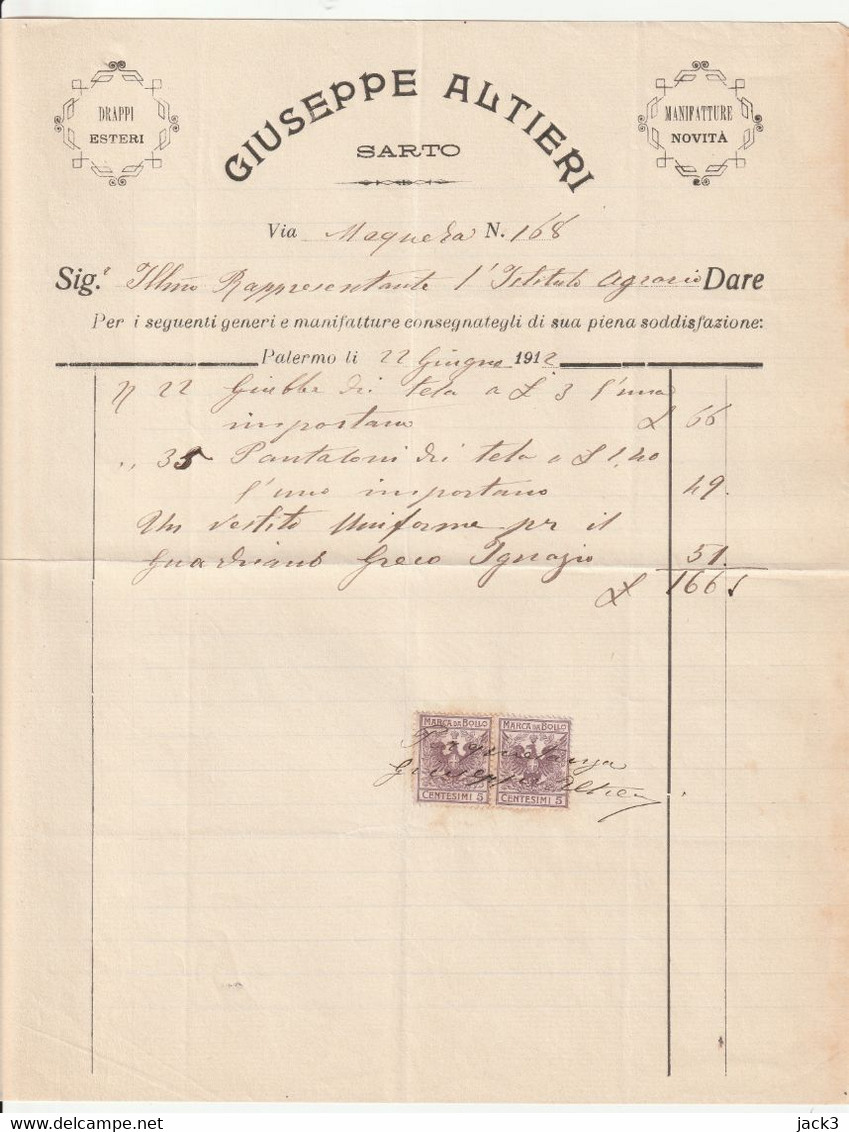 DRAPPI
ESTERI
GIUSEPPE ALTIERI
SARTO
MANIFATTURE
NOVITÀ
Via Maqueda N. 168
Sig.r Illmo Rappresentante l'Istituto Agrario Dare
Per i seguenti generi e manifatture consegnategli di sua piena soddisfazione:
Palermo li 22 Giugno 1912
N 22 Giubbe di tela a £ 3 l'una
importano £ 66
,, 35 Pantaloni di tela a £ 1,40
l'uno importano 49.
Un vestito Uniforme pr il
guardiano Greco Ignazio 51.
£ 166
MARCA DA BOLLO MARCA DA BOLLO
Per quietanza
Giuseppe Altieri
CENTESIMI 5 CENTESIMI 5
delcampe.net
jack3